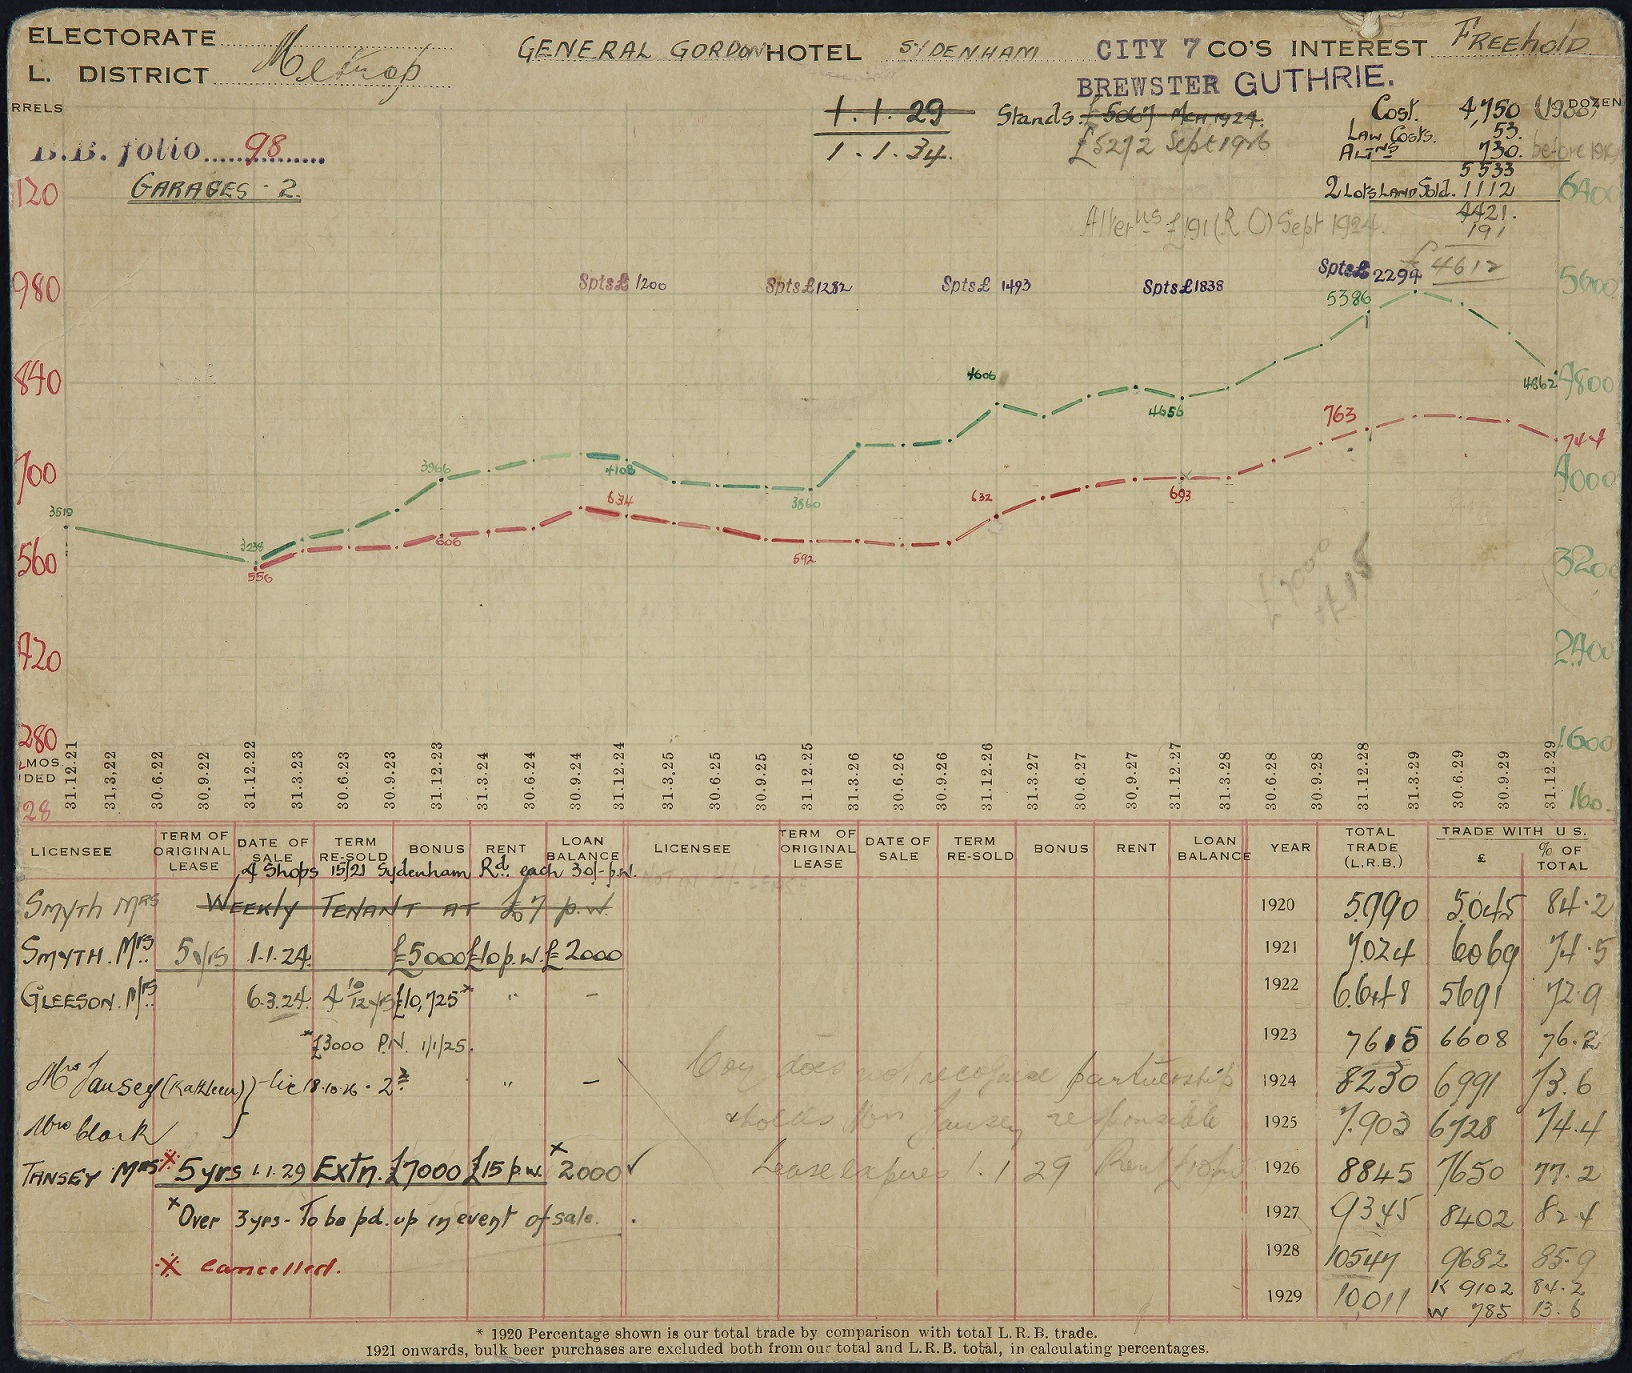 ELECTORATE Metrop
GENERAL GORDON HOTEL SYDENHAM CITY 7 CO'S INTEREST FREEHOLD
L. DISTRICT
BREWSTER GUTHRIE.
RRELS
1.1.29 Stands £5067 Mch 1924. Cost. 4,750 DOZEN
Law Costs. 53.
B.B. folio 98 1.1.34. £5272 Sept 1926 ALTNS 730.
5533
120 GARAGES - 2. 2 Lots Land Sold. 1112 6400
4421.
Alterns £191 (R O) Sept 1924. 191
£4612
980 Spts £ 1200 Spts £1282 Spts £ 1493 Spts £1838 Spts £ 2294 5600
5386
840 4606 4656 4862 4800
763
744
700 3966 4108 4000
3519 634 3860 632 693
3238 606 592
560 556 3200
£2000
420 2400
280 1600
MOS
DED
28 160.
31.12.21 31.3.22 30.6.22 30.9.22 31.12.22 31.3.23 30.6.23 30.9.23 31.12.23 31.3.24 30.6.24 30.9.24 31.12.24 31.3.25 30.6.25 30.9.25 31.12.25 31.3.26 30.6.26 30.9.26 31.12.26 31.3.27 30.6.27 30.9.27 31.12.27 31.3.28 30.6.28 30.9.28 31.12.28 31.3.29 30.6.29 30.9.29 31.12.29
LICENSEE TERM OF ORIGINAL LEASE DATE OF SALE TERM RE-SOLD BONUS RENT LOAN BALANCE LICENSEE TERM OF ORIGINAL LEASE DATE OF SALE TERM RE-SOLD BONUS RENT LOAN BALANCE YEAR TOTAL TRADE (L.R.B.) TRADE WITH US. £ % OF TOTAL
4 Shops 15/21 Sydenham Rd. each 30/- p.w.
SMYTH MRS WEEKLY TENANT AT £7 p.w. 1920 5990 5045 84.2
SMYTH. MRS 5 yrs 1.1.24. £5000 £10 p.w. £2000 1921 7024 6069 74.5
GLEESON. MRS 6.3.24. 4 10/12 yrs £10,725* " – 1922 6648 5691 72.9
*£3000 P.N. 1/1/25. 1923 7615 6608 76.2
Mrs Tansey (Kathleen) - lic 18.10.26 . " – Coy does not recognise partnership 1924 8230 6991 73.6
Mrs Clark & holds Mrs Tansey responsible 1925 7903 6728 74.4
TANSEY MRS 5 yrs 1.1.29 Extn. £7000 £15 p.w. × 2000 ✓ Lease expires 1.1.29 Rent £10 pw 1926 8845 7650 77.2
× Over 3 yrs - To be pd. up in event of sale. 1927 9345 8402 82.4
※ cancelled. 1928 10547 9682 85.9
1929 10,011 K 9102 84.2
W 785 13.6
* 1920 Percentage shown is our total trade by comparison with total L.R.B. trade.
1921 onwards, bulk beer purchases are excluded both from our total and L.R.B. total, in calculating percentages.